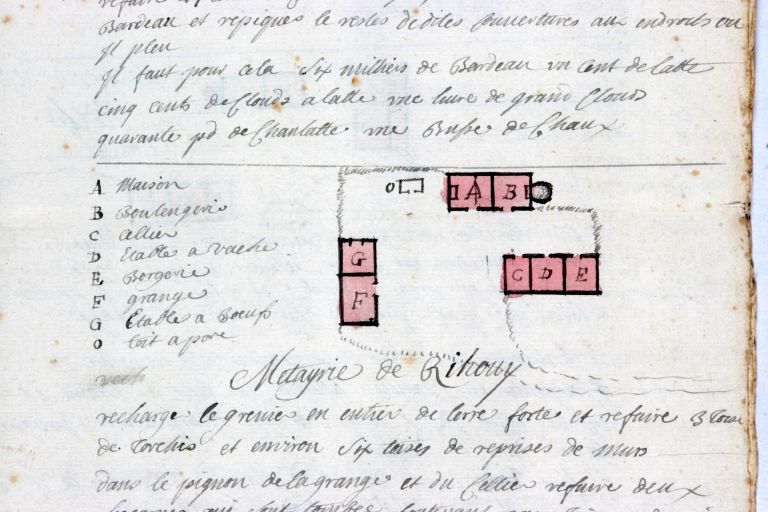 Bardeau et repiques le restes desdites Couvertures aux endroits ou
Il pleu
Il faut pour cela Six milliers de Bardeau un Cent de latte
cinq cents de Clouds a latte une livre de grand Clouds
quarante pd de Chanlatte une Busse de Chaux
A Maison
B Boulengerie
C Cellier
D Etable a vache
E Bergerie
F grange
G Etable a Boeufs
O toit a porc
O A B
G
F
C D E
Metayrie de Rihouy
recharge le grenier en entier de terre forte et refaire 3 Toise
de Torchis et environ Six toises de reprises de murs
dans le pignon de la grange et du Cellier refaire deux
qui sont tombés